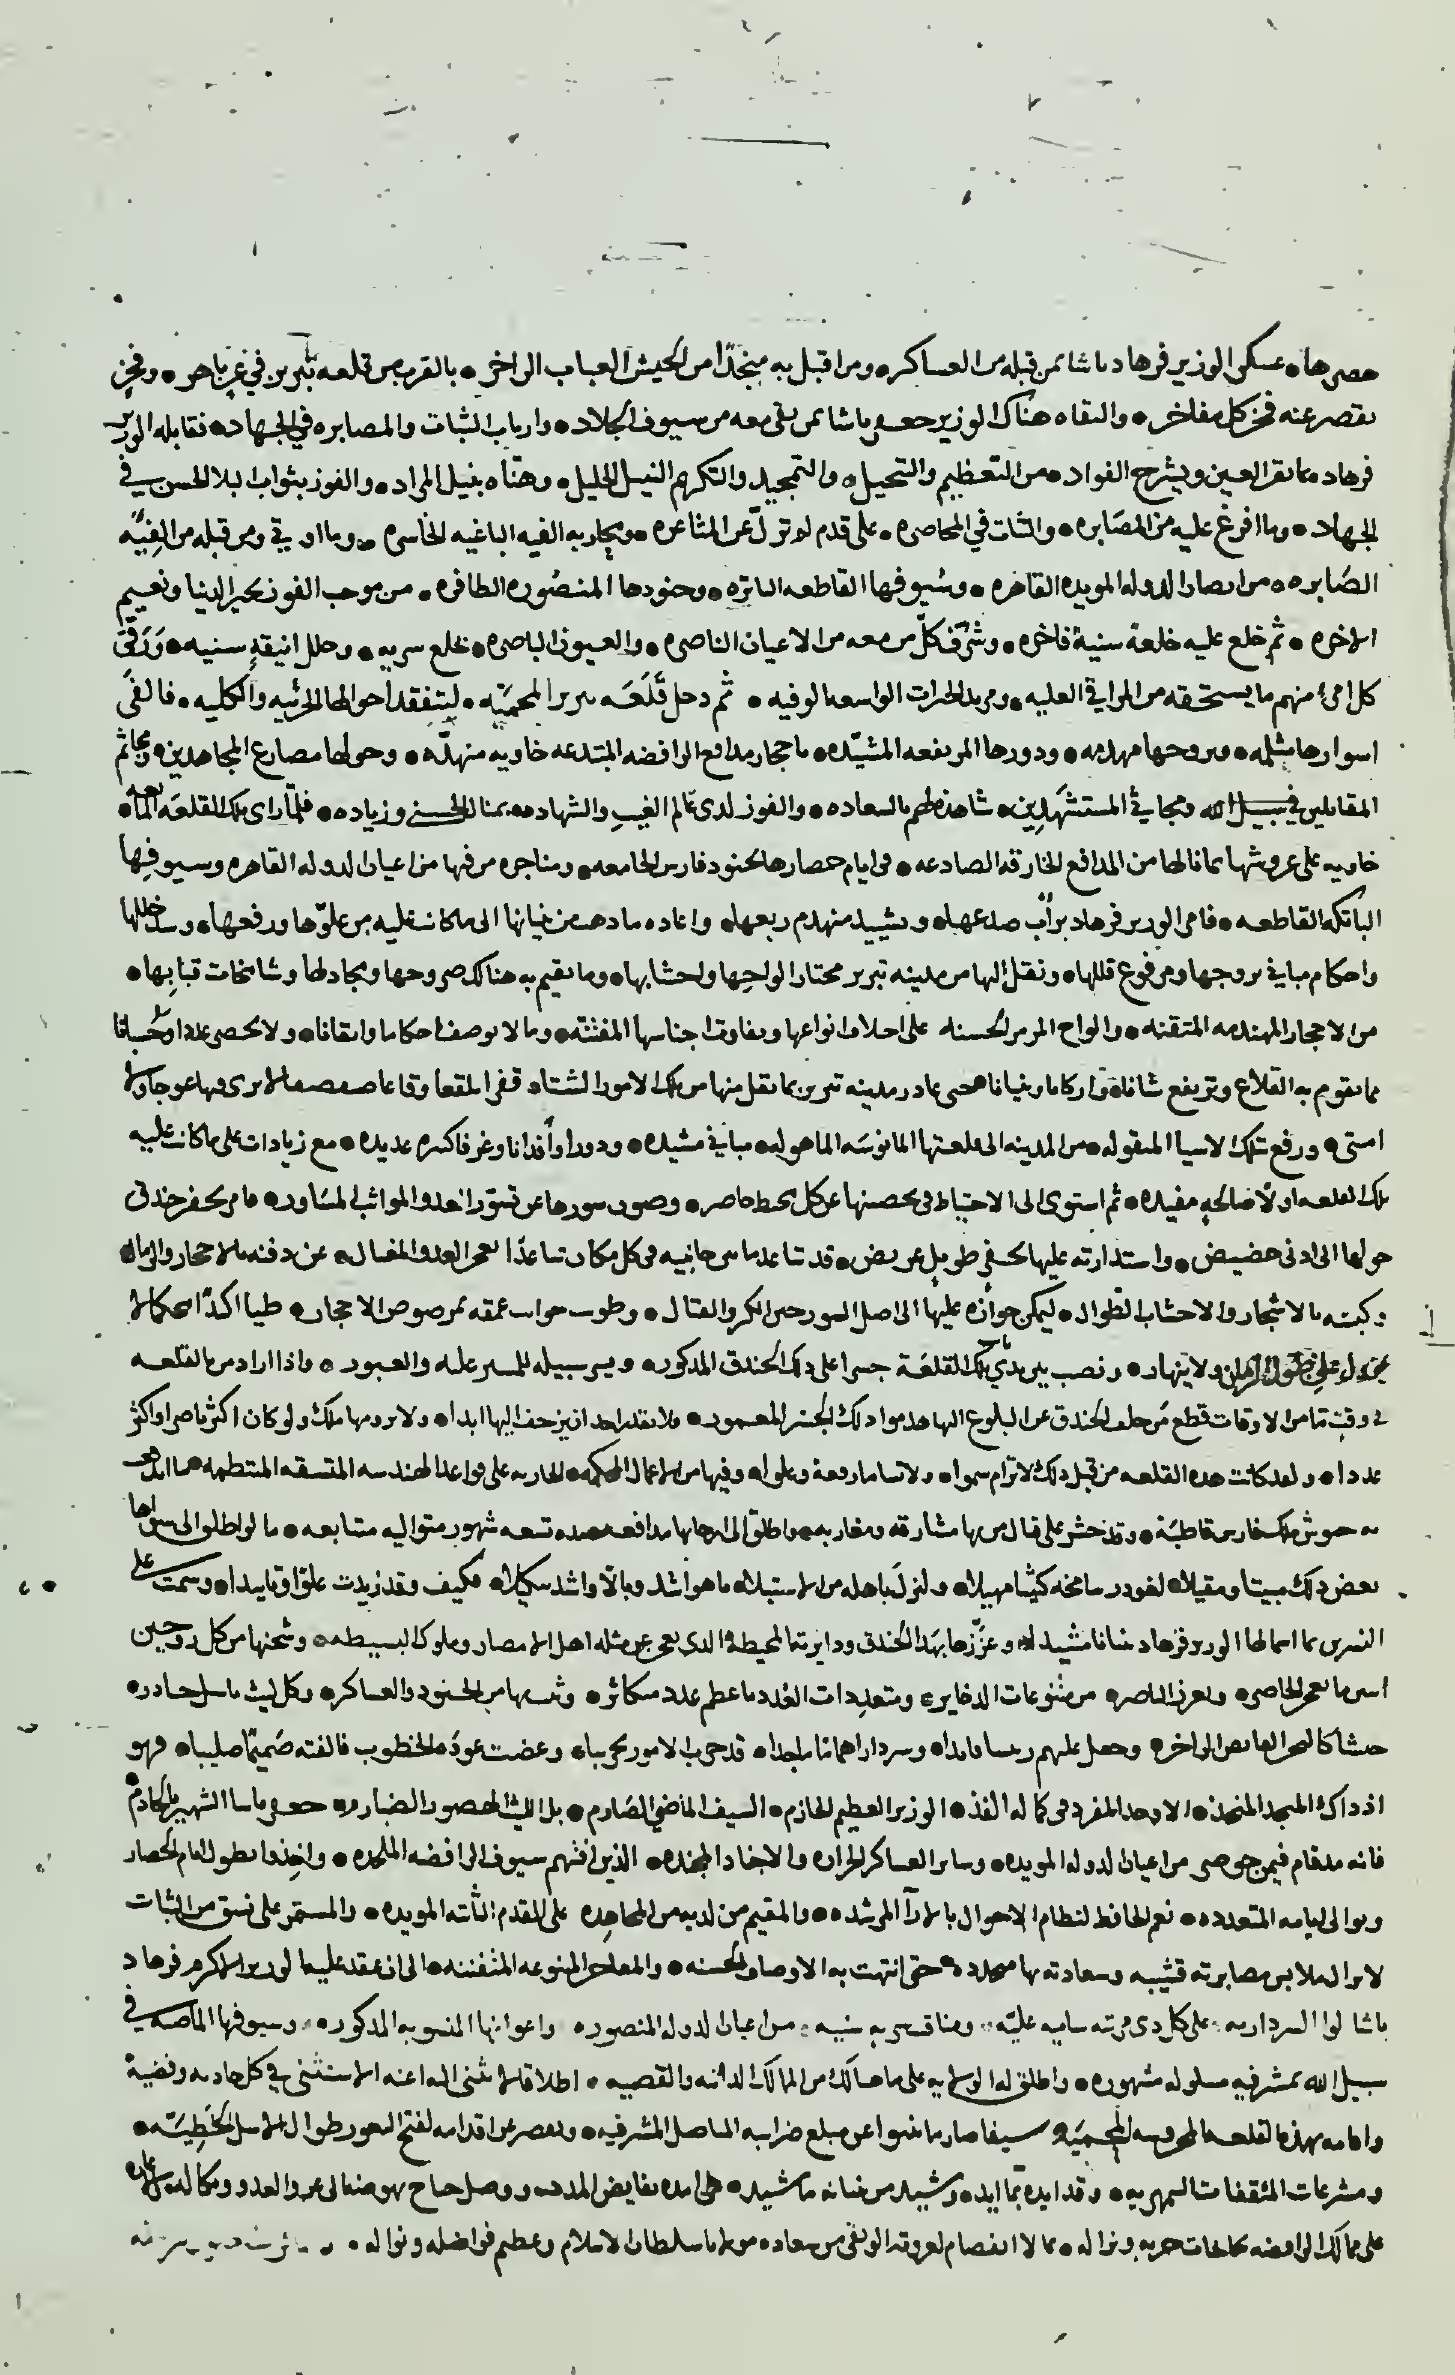 حصرها • عسكر الوزير فرهاد باشا من قبله من العساكر • ومن اقبل به منجدًا من الجيش العباب الزاخر • بالقرب من قلعه تبريز في عز باهر • وفخر
يقصر عنه فخر كل مفاخر • والتقاه هناك الوزير جعفر باشا بمن بقي معه من سيوف الجلاد • وارباب الثبات والمصابره في الجهاد • فقابله الوزير
فرهاد بما يقر العين ويشرح الفواد • من التعظيم والتبجيل • والتمجيد والتكريم النبيل الجليل • وهنّاه بنيل المراد • والفوز بثواب البلا الحسن في
الجهاد • وما افرغ عليه من المصابره • والثبات في المحاصره • على قدم لم تزل عن المثاغره • ومحاربه الفيه الباغيه الخاسره • وما اوتي ومن قبله من الفئه
الصّابره • من انصار الدوله المويده القاهره • وسُيوفها القاطعه الباتره • وجنودها المنصُوره الظافره • من موجب الفوز بخير الدنيا ونعيم
الاخره • ثم خلع عليه خلعة سنية فاخره • وشرّف كلّ من معه من الاعيان الناصره • والعيون الباصره • بخلع سريه • وحلل انيقةٍ سنيه • وَرَقّى
كل امرئ منهم ما يستحقه من المراقي العليه • ومزيد الخيرات الواسعه الوفيه • ثم دخل قَلْعَه تبريز المحميّه • ليتفقد احوالها الجزئيه والكليه • فالفَى
اسوارها مثلمه • وبروجها مهدمه • ودورها المرتفعه المشيّده • باحجار مدافع الرافضه المبتدعه خاويه منهدّه • وحولها مصارع المجاهدين • ومجاثم
المقاتلين في سبيل الله ومجاثي المستشهدين • شاهدة لهم بالسعاده • والفوز لدى عالم الغيب والشهاده • بمنال الحسنى وزياده • فلمّا راى تلك القلعَه
خاويه على عروشها بما نالها من المدافع الخارقه الصادعه • في ايام حصارها بجنود فارس الجامعه • ومناجزه من فيها من اعيان الدوله القاهره وسيوفها
الباتكه القاطعه • فامر الوزير فرهاد برأب صدعها • وتشييد منهدم ربعها • واعاده ما ذهب من بنيانها الى ما كانت عليه من علوّها ورفعها • وسد خللها
واحكام مباني بروجها ومرفوع قللها • ونقل اليها من مدينه تبريز مختار الواحها واخشابها • وما يقيم به هنالك صروحها وشامخات قبابها •
من الاحجار المهندمه المتقنه • والواح المرمر الحسنه على اختلاف انواعها وتفاوت اجناسها المفننه • وما لا يوصف احكاما واتقانا • ولا يحصى عددا وحُسبانا
مما يقوم به القلاع وترتفع شانا • واركانا وبنيانا حتى غادر مدينه تبريز بما نقل منها من تلك الامور الشتا • قفرا بلقعا وقاعا صفصفا لا يرى فيها عوجا ولا
امتى • ورفع بتلك الاشيا المنقوله • من المدينه الى قلعتها المانوسَه الماهوله • مباني مشيده • ودورا وأفدانا وغرفا كثيره عديده • مع زيادات على ما كانت عليه
تلك القلعه اولا صالحهٍ مفيده • ثم استوى الى الاحتياط في تحصينها عن كل محيط حاصر • وصون سورها عن تسوّر العدو المواثب المساور • فامر بحفر خندق
حولها الى ادنى حضيض • واستدارته عليها بحفرٍ طويلٍ عريض • قد تباعد ما بين جانبيه في كل مكان تباعدًا يعجز العدو المغتال • عن دفنه بالاحجار والرمال
وكبته بالاشجار والاخشاب الطوال • ليمكن جوازه عليها الى اصل السور حين الكر والقتال • وطوى جوانب عمقه بمرصوص الاحجار • طيا اكدًا احكاما لا
يزول على طول الزمان ولا ينهار • ونصب بين يدي باب تلك القلعَة جسرا على ذلك الخندق المذكور • وييسر سبيله للسير عليه والعبور • فاذا اراد من بالقلعه
في وقتٍ ما من الاوقات قطع مَن خلف الخندق عن البلوغ اليها هدموا ذلك الجسر المعمور • فلا يقدر احد ان يزحف اليها ابدا • ولا يرومها ملك ولو كان اكثر ناصرا واكثر
عددا • ولقد كانت هذه القلعه من قبل ذلك لا ترام سموا • ولا تساما رفعة وعلوا • وفيها من الاعمال المحكمه • الجاريه على قواعد الهندسه المتسقه المنتظمه
به جيوش ملك فارس قاطبَة • وقد حشر على قتال من بها مشارقه ومغاربه • واطلق الى ارجائها مدافعه مده تسعه شهور متواليه متتابعه • ما لو اطلق الى سواها
بعض ذلك مبيتا ومقيلا • لغودر شامخه كثيبًا مهيلا • ولنزل باهله من الاستيلاء ما هو اشد وبالا واشد تنكيلا • فكيف وقد زيدت علوا وتاييدا • وسمت على
النسرين بما اسما لها الوزير فرهاد بنيانا مشيدا • وعزّزها بهذا الخندق ودايرته المحيطة الذي يعجز عن مثله اهل الامصار وملوك البسيطه • وشحنها من كل زوجين
اثنين ما يعجز الحاصر • ويعزز الناصر • من متنوعات الذخاير • ومتعددات العُدد ما عظم عدد متكاثر • وشحنها من الجنود والعساكر • وكل ليث باسل خادر •
جيشا كالبحر الفايض الزاخر • وجعل عليهم رئيسا قايدا • وسردارا هماما ماجدا • قد جرب الامور تجريبا • وعضت عوده الخطوب فالفته صَميمًا صليبا • فهو
اذ ذاك المنجد المنجذ • الاوحد المفرد في كماله الفذ • الوزير العظيم الحازم • السيف الماضي الصَارم • بل الليث الهصور الضبارم • جعفر باشا الشهير بالخادم
فانه مد قام فيمن حوصر من اعيان الدوله المويده • وساير العساكر الجراره والاجناد المجنده • الذين افنتهم سيوف الرافضه الملحده • واخذوا بطول ايام الحصار
وتوالي لياليه المتعدده • نعم الحافظ لنظام الاحوال بالارآ المرشده • والمقيم من لديه من المجاهده على القدم الثابته المويده • والمستمر على نسق من الثبات
لا يزال ملابس مصابرته قشيبه وسعادته بها مجدده • حتى انتهت به الاوصاف الحسنه • والمعاخر المتنوعه المتفننه • الى ان عقد عليه الوزير الاكرم فرهاد
باشا لوا السرداريه • على كل ذي مرتبه ساميه عليّه • ومناقب سنيه • من اعيان الدوله المنصوره • واعوانها المنسوبه المذكوره • وسيوفها الماضيه في
سبيل الله بمشرفيه مسلوله مشهوره • واطلق له الولايه على ما هنالك من الممالك الدانيه والقصيه • اطلاقا لا ينثني اليه اعنه الاستثنى في كل حادثه وقضيةٍ
واقامه بهذه القلعه المحروسه المحميَه سيفا صارما ينبوا عن مبلغ ضرابه المناصل المشرفيه • وتقصر عن اقدامه لفتح الثغور طوال الاسل الخَطِيّه •
ومشرعات المثقفات السمهريه • وقد ايده بما ايده • وشيد من بنيانه ما شيده • على مده بفايض المدد • ووصل جناح نهوضه الى غزو العدو ونكاله
على ممالك الرافضه حربه ونزاله • بما لا انفصام لعروته الوثقى من سعاده مولانا سلطان الاسلام وعظيم فواضله ونواله •